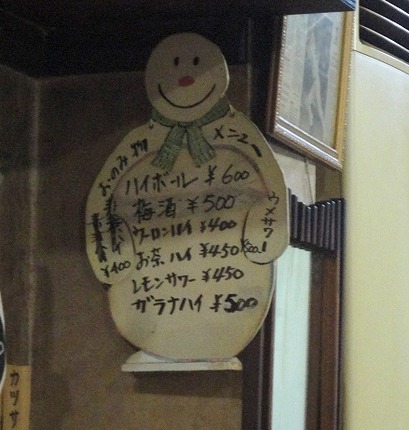 メニュー
おのみ物
ハイボール ¥600
梅酒 ¥500
ウーロンハイ ¥400
お茶ハイ ¥450
レモンサワー ¥450
ガラナハイ ¥500
¥400
ウメサワー
カツサ